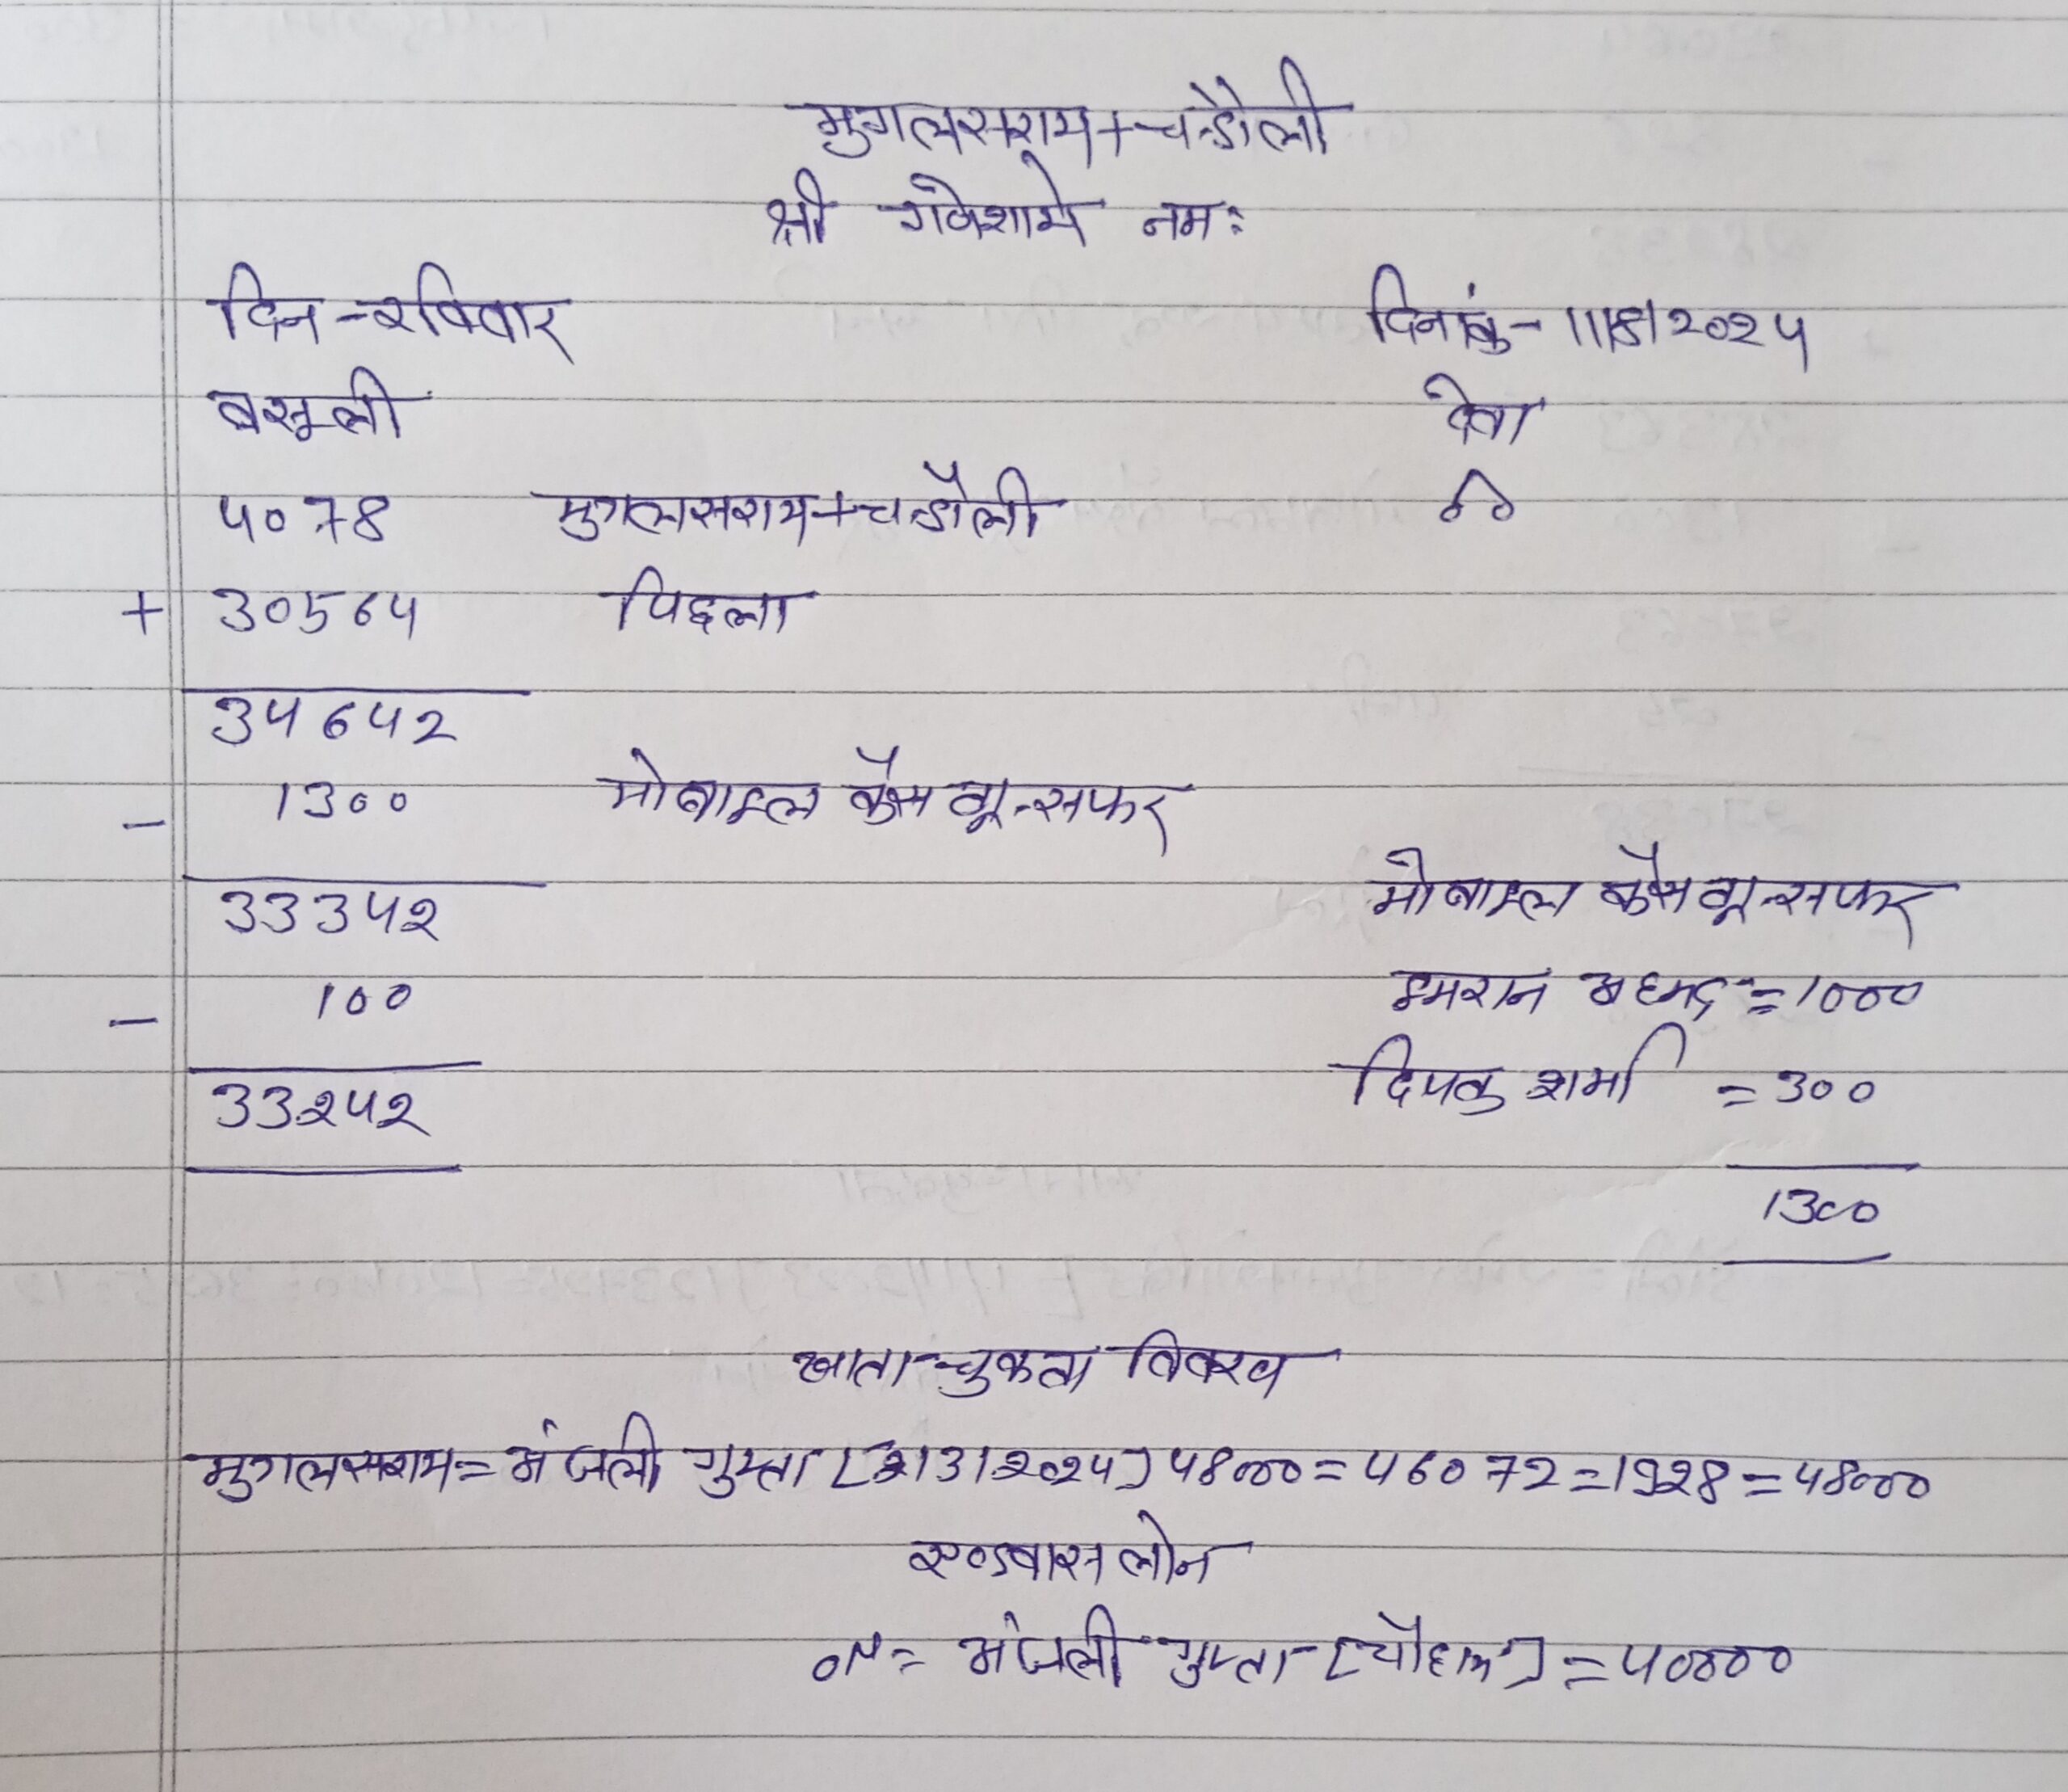 मुगलसराय + चन्डौली
श्री गणेशाये नमः
दिन - रविवार दिनांक - 11/8/2024
वसूली देना
4078 मुगलसराय + चन्डौली 00
+ 30564 पिछला
34642
- 1300 मोबाइल कैस ट्रान्सफर
33342 मोबाइल कैस ट्रान्सफर
- 100 इमरान अहमद = 1000
33242 दिपक शर्मा = 300
1300
खाता चुकता विवरण
मुगलसराय = अंजली गुप्ता [2/3/2024] 48000 = 46072 = 1928 = 48000
एडवांस लोन
ON = अंजली गुप्ता = 40000